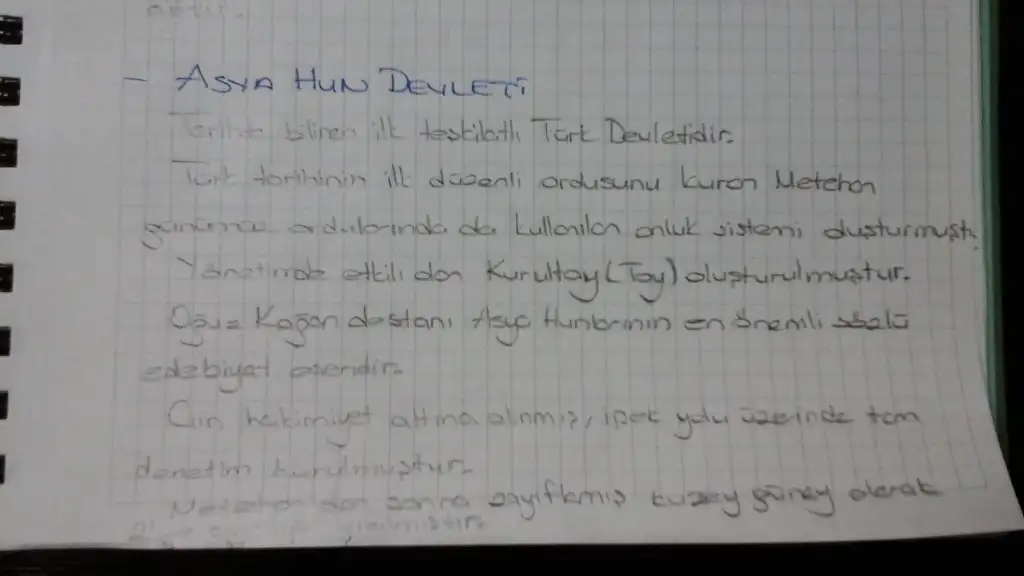 - ASYA HUN DEVLETİ
Tarihte bilinen ilk teşkilatlı Türk Devletidir.
Türk tarihinin ilk düzenli ordusunu kuran Metehan
günümüz ordularında da kullanılan onluk sistemi oluşturmuştu
Yönetimde etkili olan Kurultay (Toy) oluşturulmuştur.
Oğuz Kağan destanı Asya Hunlarının en önemli sözlü
edebiyat eseridir.
Çin hakimiyet altına alınmış, ipek yolu üzerinde tam
denetim kurulmuştur.
Metehan'dan sonra zayıflamış kuzey güney olarak